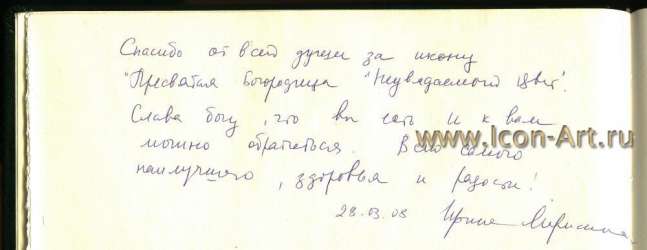 Спасибо от всей души за икону
"Пресвятая Богородица "Неувядаемый Цвет".
Слава богу, что вы есть и к вам
можно обратиться. Всего самого
www.Icon-Art.ru
наилучшего, здоровья и радости!
28.03.08 Ирина